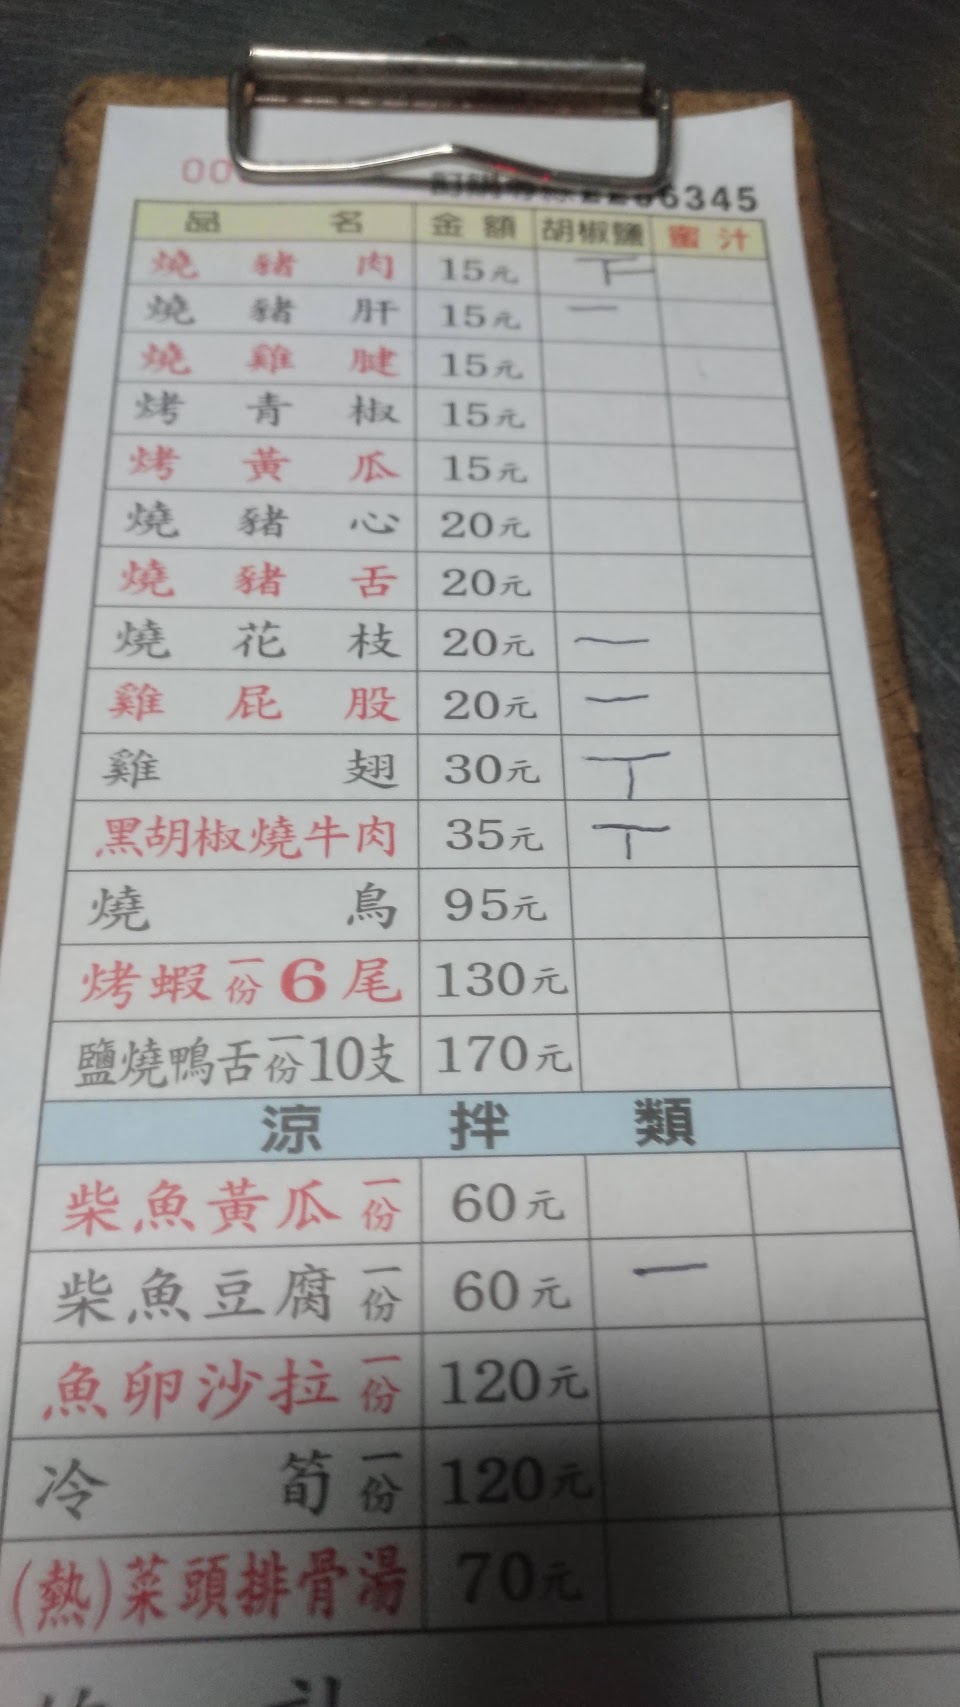 00
6345
品名 金額 胡椒鹽 蜜汁
燒豬肉 15元 丅
燒豬肝 15元 一
燒雞腱 15元
烤青椒 15元
烤黃瓜 15元
燒豬心 20元
燒豬舌 20元
燒花枝 20元 一
雞屁股 20元 一
雞翅 30元 丅
黑胡椒燒牛肉 35元 丅
燒鳥 95元
烤蝦一份6尾 130元
鹽燒鴨舌一份10支 170元
涼拌類
柴魚黃瓜一份 60元
柴魚豆腐一份 60元 一
魚卵沙拉一份 120元
冷筍一份 120元
(熱)菜頭排骨湯 70元